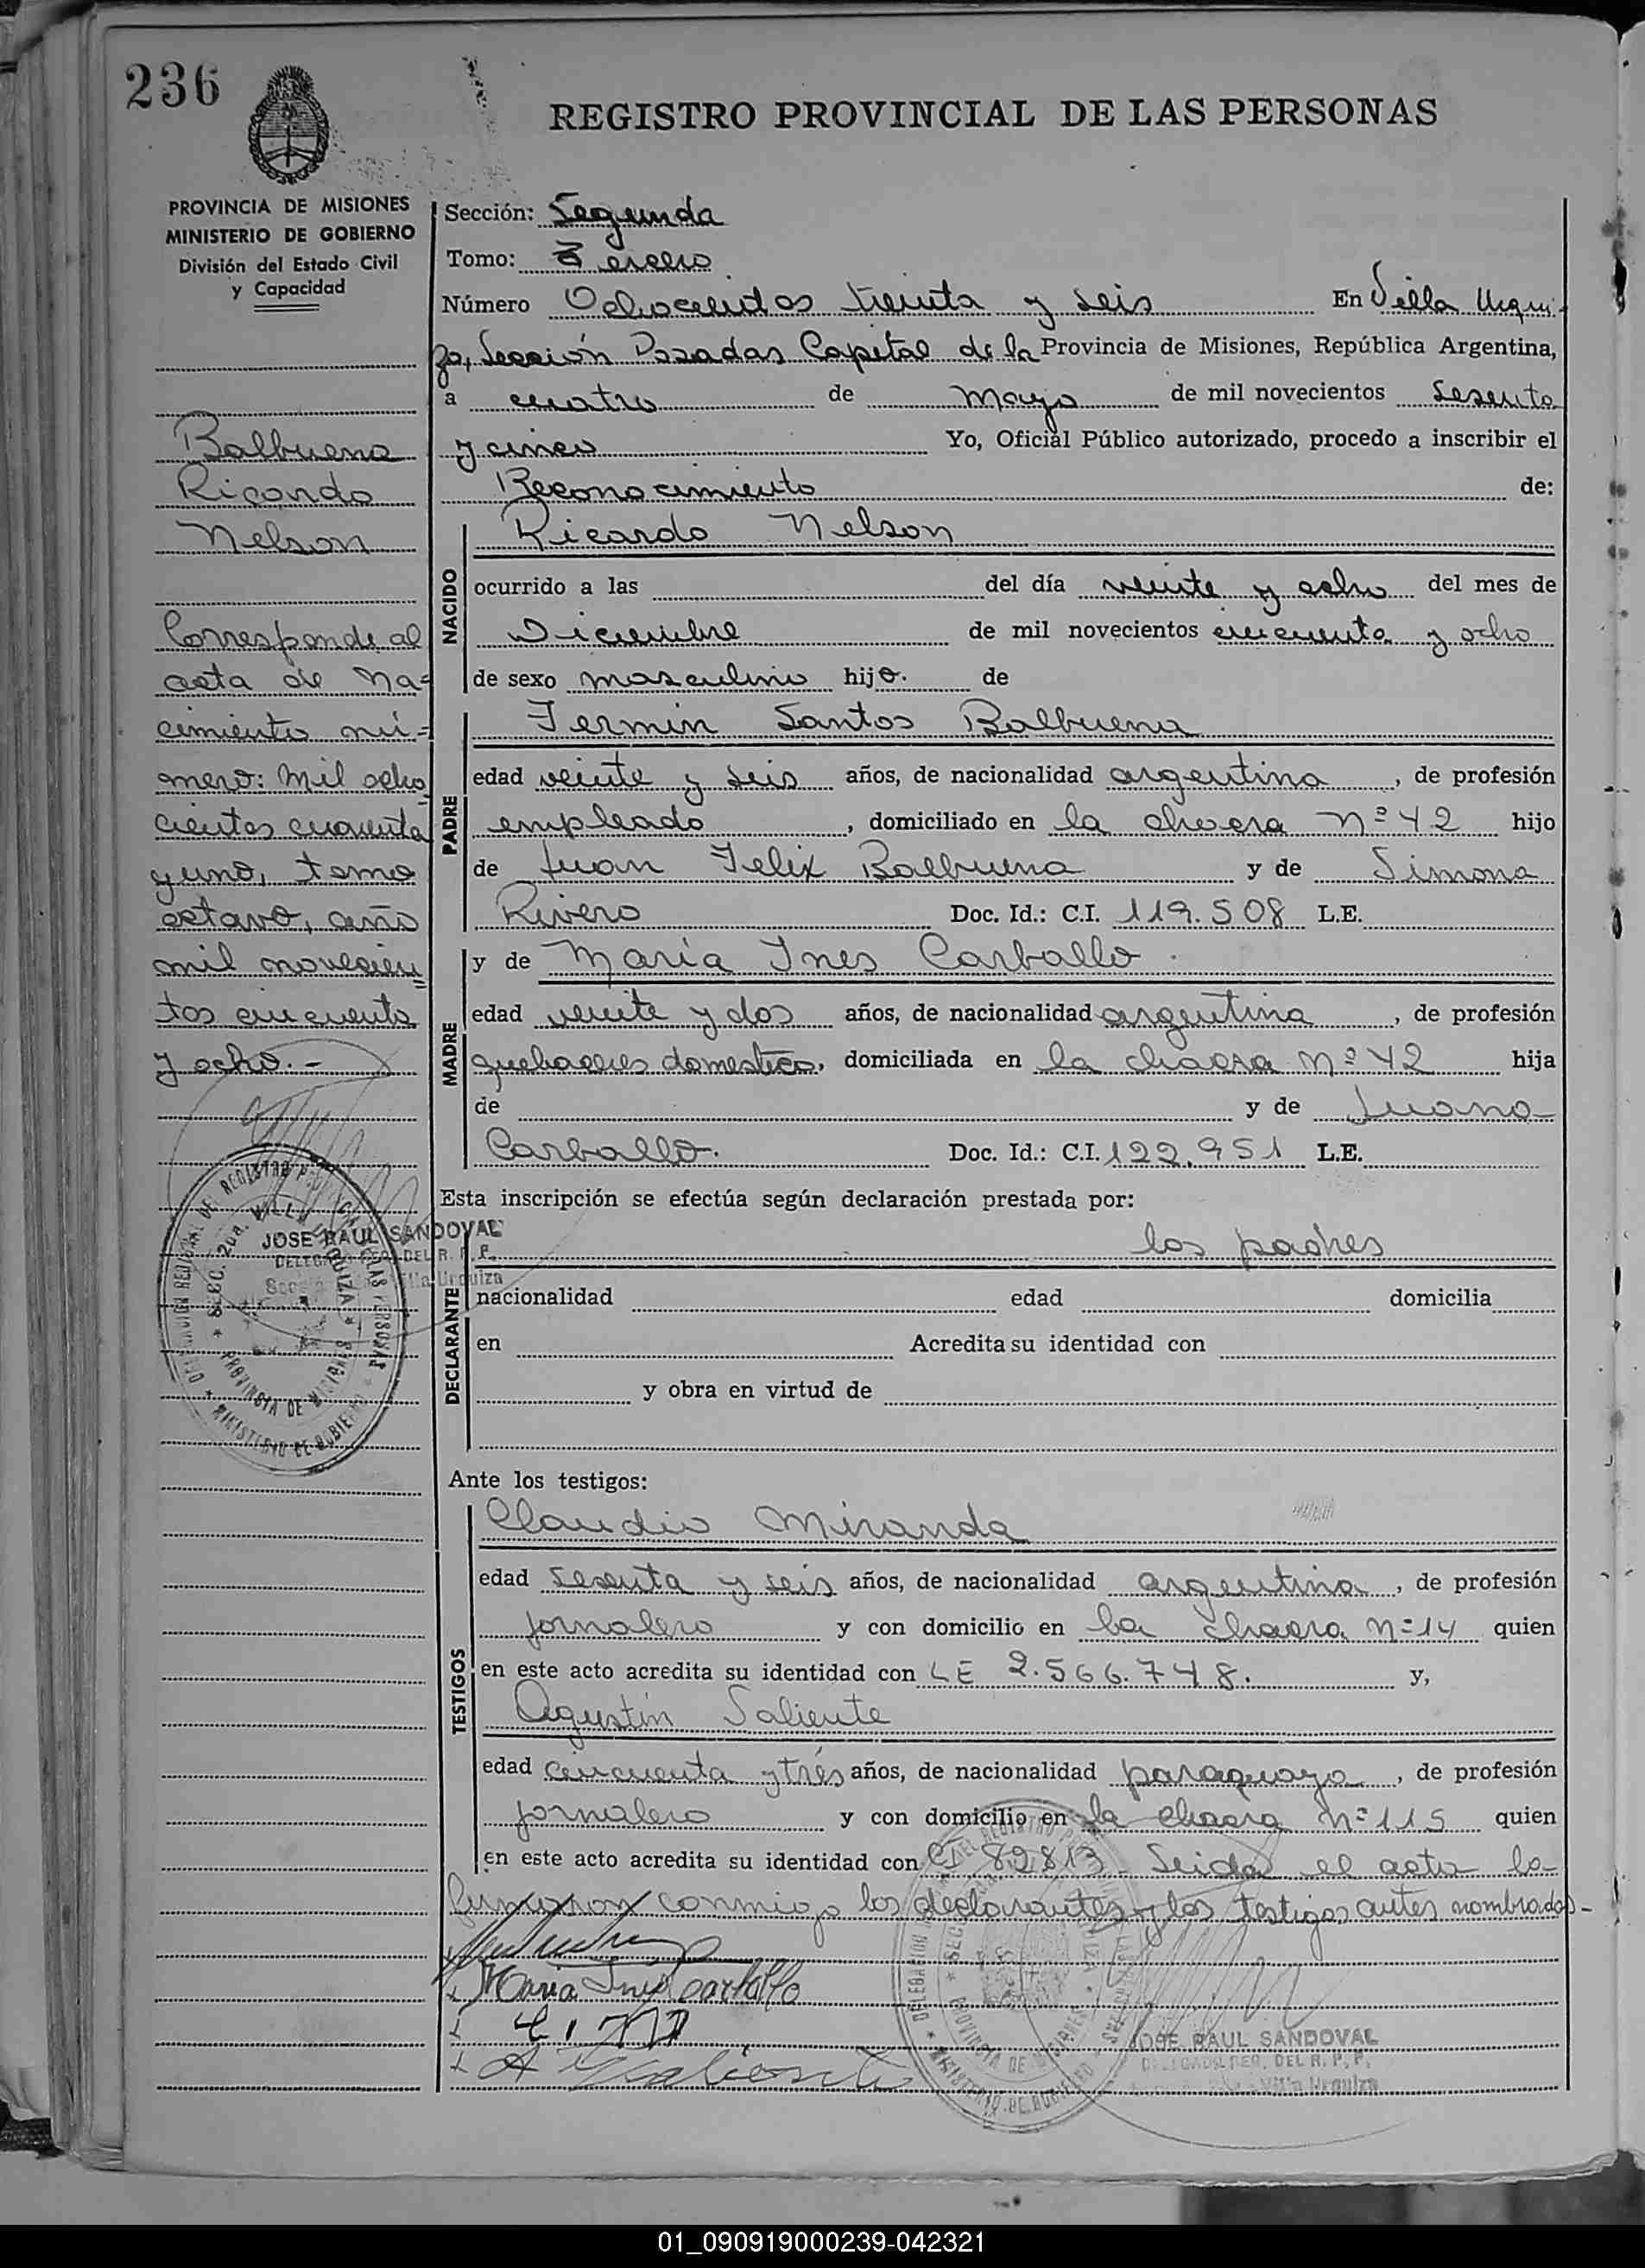 236
REGISTRO PROVINCIAL DE LAS PERSONAS
PROVINCIA DE MISIONES
MINISTERIO DE GOBIERNO
División del Estado Civil
y Capacidad
Balbuena
Ricardo
Nelson
Corresponde al
acta de na=
cimiento nú=
mero: mil ocho
cientos cuarenta
y uno, tomo
octavo, año
mil novecien
tos cincuenta
y ocho.-
JOSE RAUL SANDOVAL
Sección: Segunda
Tomo: Tercero
Número Ochocientos treinta y seis En Villa Urqui-
za, Sección Posadas Capital de la Provincia de Misiones, República Argentina,
a cuatro de Mayo de mil novecientos sesenta
y cinco Yo, Oficial Público autorizado, procedo a inscribir el
Reconocimiento de:
Ricardo Nelson
NACIDO
ocurrido a las del día veinte y ocho del mes de
Diciembre de mil novecientos cincuenta y ocho
de sexo masculino hijo. de
Fermin Santos Balbuena
PADRE
edad veinte y seis años, de nacionalidad argentina, de profesión
empleado, domiciliado en la chacra nº 42 hijo
de Juan Felix Balbuena y de Simona
Rivero Doc. Id.: C.I. 119.508 L.E.
MADRE
y de Maria Ines Carballo
edad veinte y dos años, de nacionalidad argentina, de profesión
quehaceres domestico, domiciliada en la chacra nº 42 hija
de y de Juana
Carballo. Doc. Id.: C.I. 122.951 L.E.
Esta inscripción se efectúa según declaración prestada por:
los padres
DECLARANTE
nacionalidad edad domicilia
en Acredita su identidad con
y obra en virtud de
Ante los testigos:
TESTIGOS
Claudio Miranda
edad sesenta y seis años, de nacionalidad argentina, de profesión
jornalero y con domicilio en la chacra nº 14 quien
en este acto acredita su identidad con LE 2.566.748. y,
Agustin Saliente
edad cincuenta y tres años, de nacionalidad paraguayo, de profesión
jornalero y con domicilio en la chacra nº 115 quien
en este acto acredita su identidad con CI 82813 - Leida el acta la
firmaron conmigo los declarantes y los testigos antes nombrados-
Maria Ines carballo
JOSE RAUL SANDOVAL
DELEGADO REG. DEL R. P. P.
Villa Urquiza
01_090919000239-042321